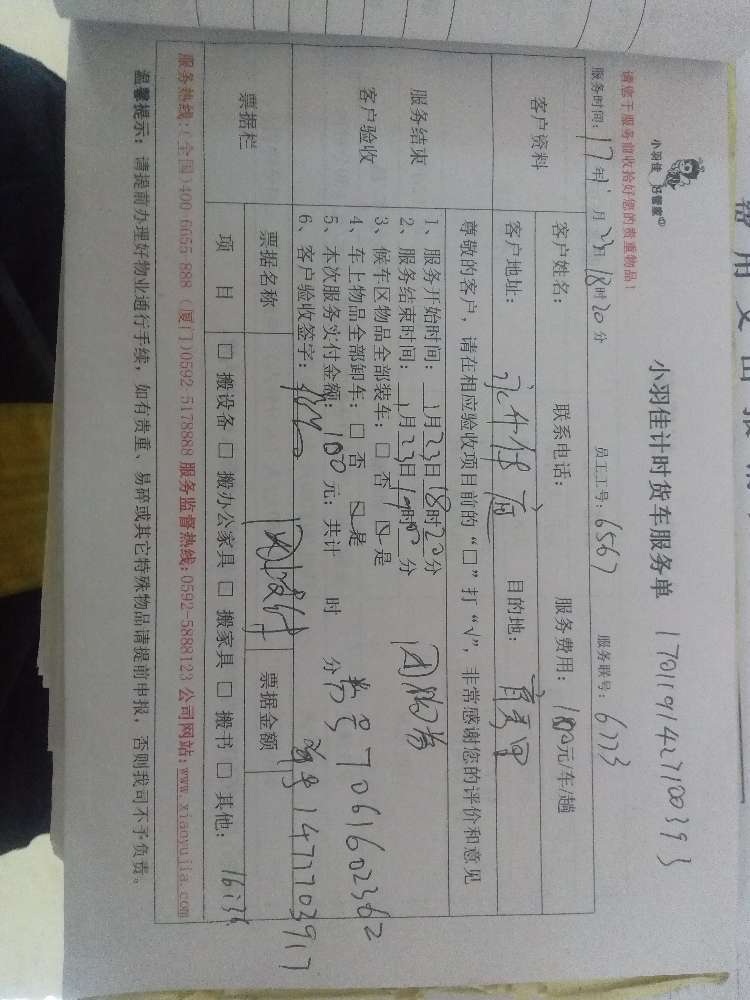 小羽佳 好管家
小羽佳计时货车服务单 1701191427100393
请您于服务前收拾好您的贵重物品！
服务时间：17年1月23日18时20分 员工工号：6567 服务联号：6773
客户资料
客户姓名： 联系电话： 服务费用：100元/车/趟
客户地址： 目的地：
尊敬的客户，请在相应验收项目前的“□”打“√”，非常感谢您的评价和意见
服务结束
客户验收
1、服务开始时间：1月23日18时20分
2、服务结束时间：1月23日19时00分
3、候车区物品全部装车：□ 否 ☑ 是
4、车上物品全部卸车：□ 否 ☑ 是
5、本次服务实付金额：100元；共计 时 分
6、客户验收签字：
券号7061602362
1477703917
票据栏
票据名称 票据金额
项 目 □ 搬设备 □ 搬办公家具 □ 搬家具 □ 搬书 □ 其他：
服务热线：(全国)400 6655 888 (厦门)0592 5178888 服务监督热线：0592-5888123 公司网站：www.xiaoyujia.com
温馨提示：请提前办理好物业通行手续，如有贵重、易碎或其它特殊物品请提前申报，否则我司不予负责。